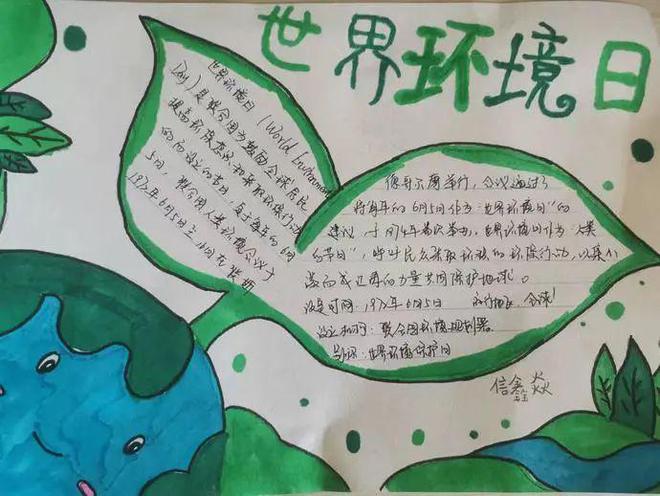 世界环境日
世界环境日 (World Environment
Day) 是联合国为鼓励全球居民
提高环境意识和采取环保行动
而设立的节日，定于每年的6月
5日，联合国人类环境会议于
1972年6月5日至16日在
德哥尔摩举行，会议通过了
将每年的6月5日作为"世界环境日"的
建议，于1974年首次举办，世界环境日作为"人类
的节日"，呼吁民众采取环保行动，以
成正面的力量共同保护地球。
设定时间：1972年6月5日 全球
设立机构：联合国环境规划署
别称：世界环境保护日
信鑫焱